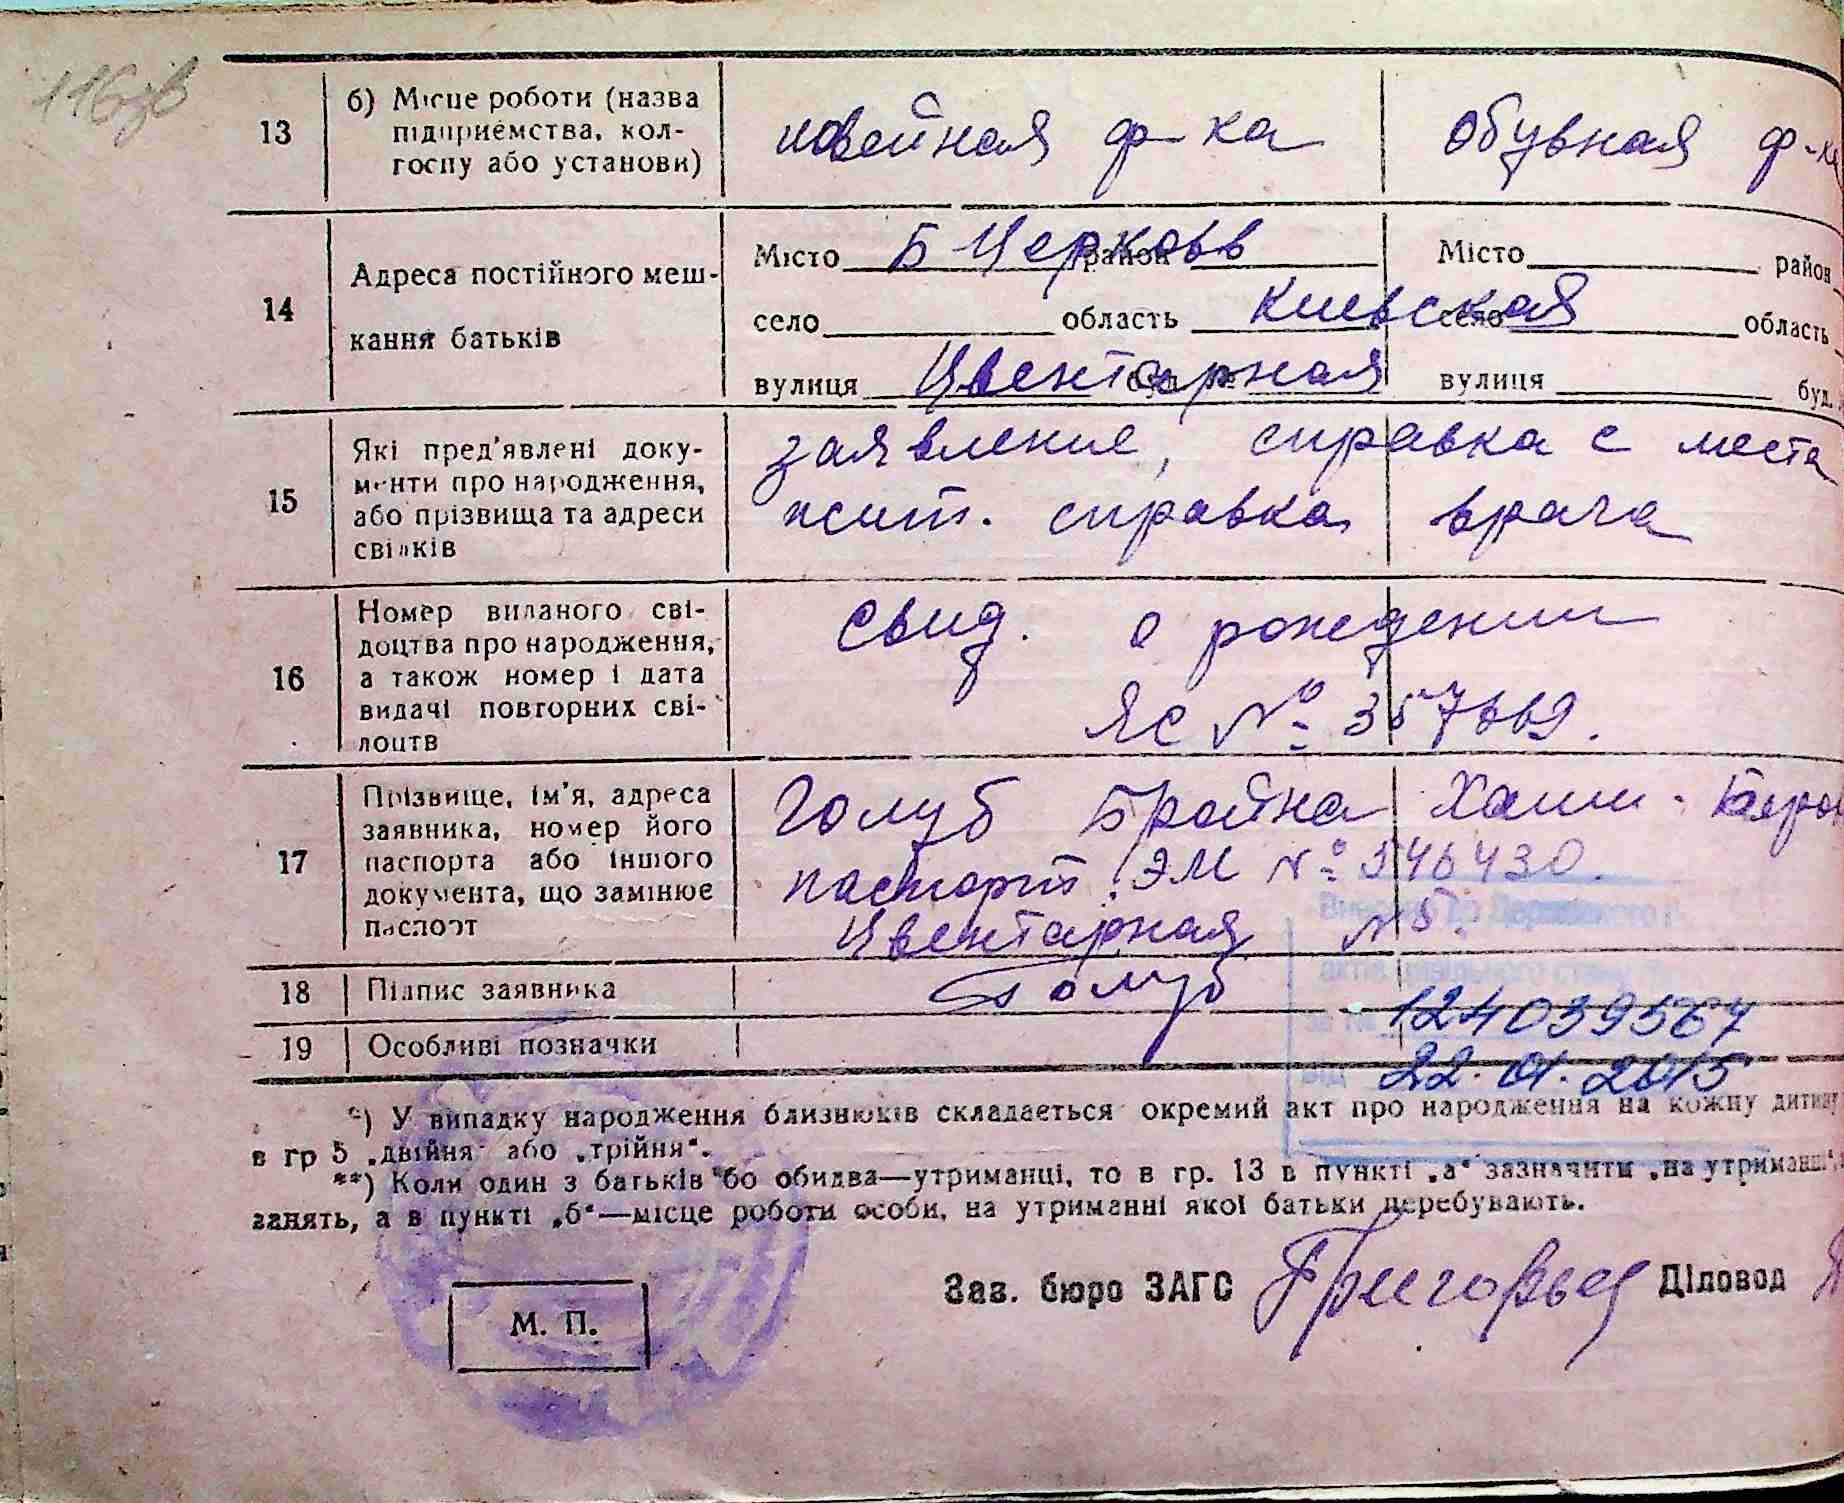 116зв
13
б) Місце роботи (назва
підприємства, кол-
госпу або установи)
швейная ф-ка
обувная ф-ка
14
Адреса постійного меш-
кання батьків
Місто Б Церковь район
Місто район
село область Киевская
село область
вулиця Цвентарная буд. №
вулиця буд.
15
Які пред'явлені доку-
менти про народження,
або прізвища та адреси
свідків
заявление, справка с места
жит. справка врача
16
Номер виданого сві-
доцтва про народження,
а також номер і дата
видачі повторних сві-
доцтв
Свид. о рождении
ЯС № 357669.
17
Прізвище, ім'я, адреса
заявника, номер його
паспорта або іншого
документа, що замінює
паспорт
Голуб Бройна Хаим-
паспорт ЭМ № 546430.
Цвентарная №5.
18
Підпис заявника
Голуб
19
Особливі позначки
Внесено до Державного
актів цивільного стану
за № 1240395674
від 22.01.2015
*) У випадку народження близнюків складається окремий акт про народження на кожну дитину
в гр 5 „двійня" або „трійня".
**) Коли один з батьків або обидва—утриманці, то в гр. 13 в пункті „а" зазначити „на утриманні"
занять, а в пункті „б"—місце роботи особи, на утриманні якої батьки перебувають.
Зав. бюро ЗАГС Григорьев Діловод
М. П.